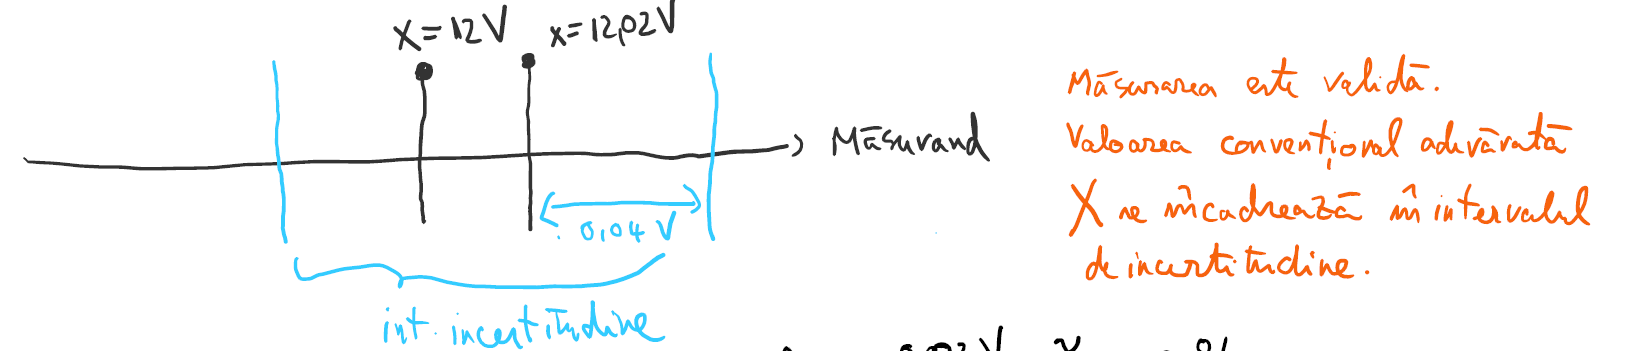 X=12V x=12,02V
Măsurand
0,04 V
int. incertitudine
Măsurarea este validă.
Valoarea convențional adevărată
X se încadrează în intervalul
de incertitudine.